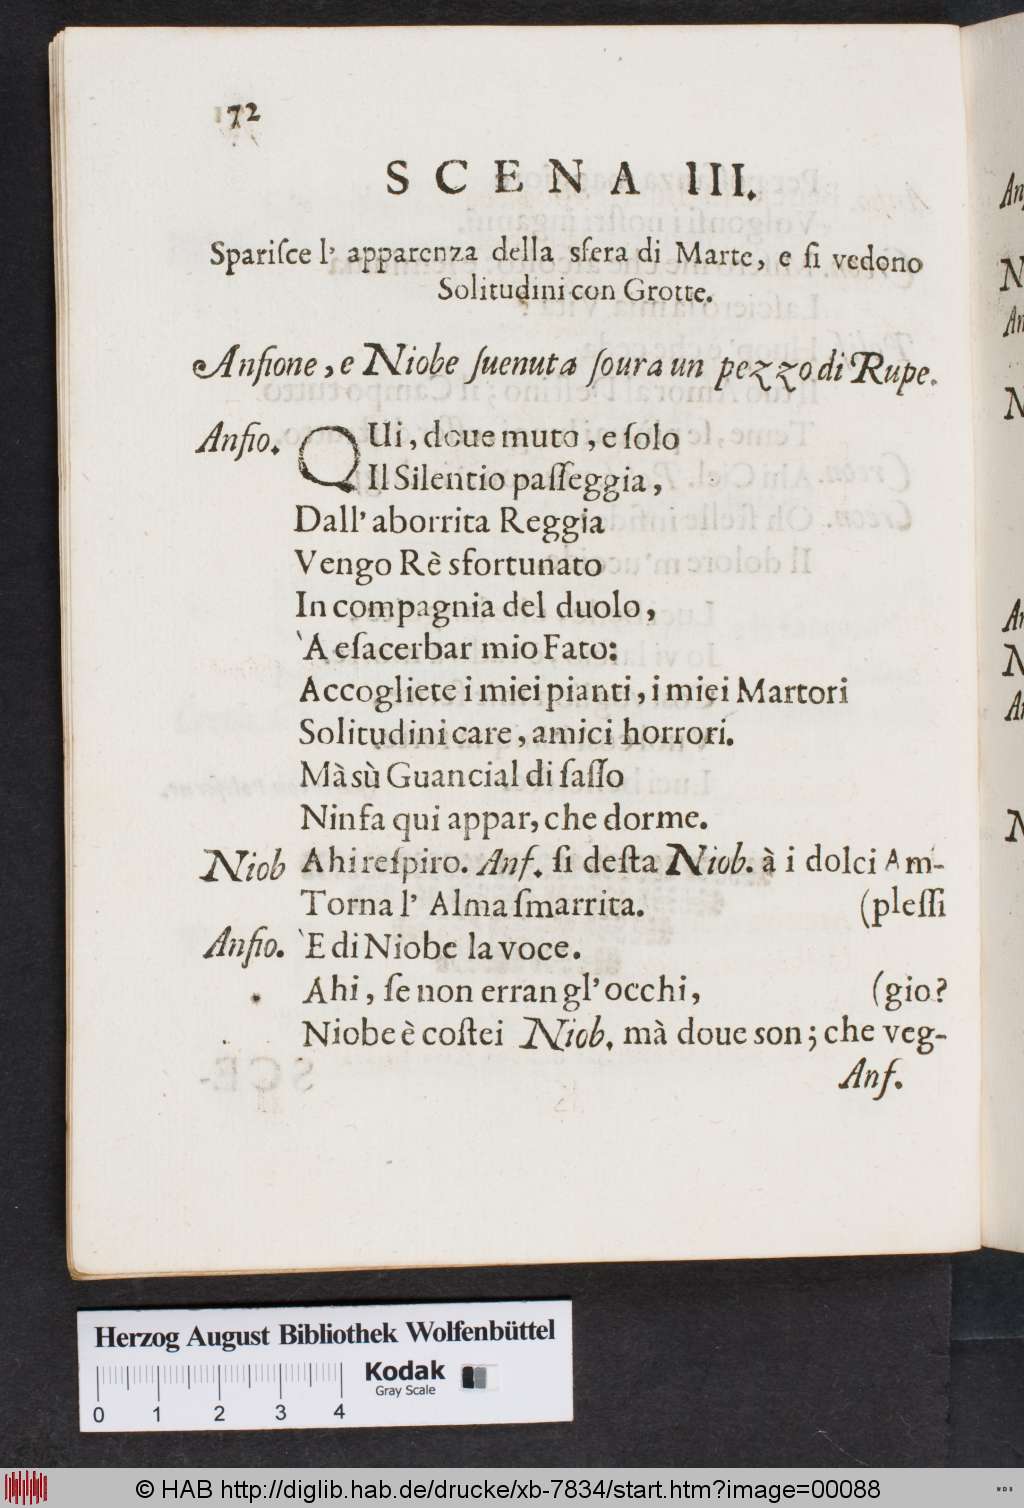 72
SCENA III.
Sparisce l' apparenza della sfera di Marte, e si vedono
Solitudini con Grotte.
Anfione, e Niobe suenuta soura un pezzo di Rupe.
Anfio. QUi, doue muto, e solo
Il Silentio passeggia,
Dall' aborrita Reggia
Vengo Rè sfortunato
In compagnia del duolo,
`A esacerbar mio Fato:
Accogliete i miei pianti, i miei Martori
Solitudini care, amici horrori.
Mà sù Guancial di sasso
Ninfa qui appar, che dorme.
Niob Ahi respiro. Anf. si desta Niob. à i dolci Am-
Torna l' Alma smarrita. (plessi
Anfio. `E di Niobe la voce.
Ahi, se non erran gl' occhi, (gio?
Niobe è costei Niob. mà doue son; che veg-
Anf.
Herzog August Bibliothek Wolfenbüttel
Kodak
Gray Scale
0 1 2 3 4
© HAB http://diglib.hab.de/drucke/xb-7834/start.htm?image=00088